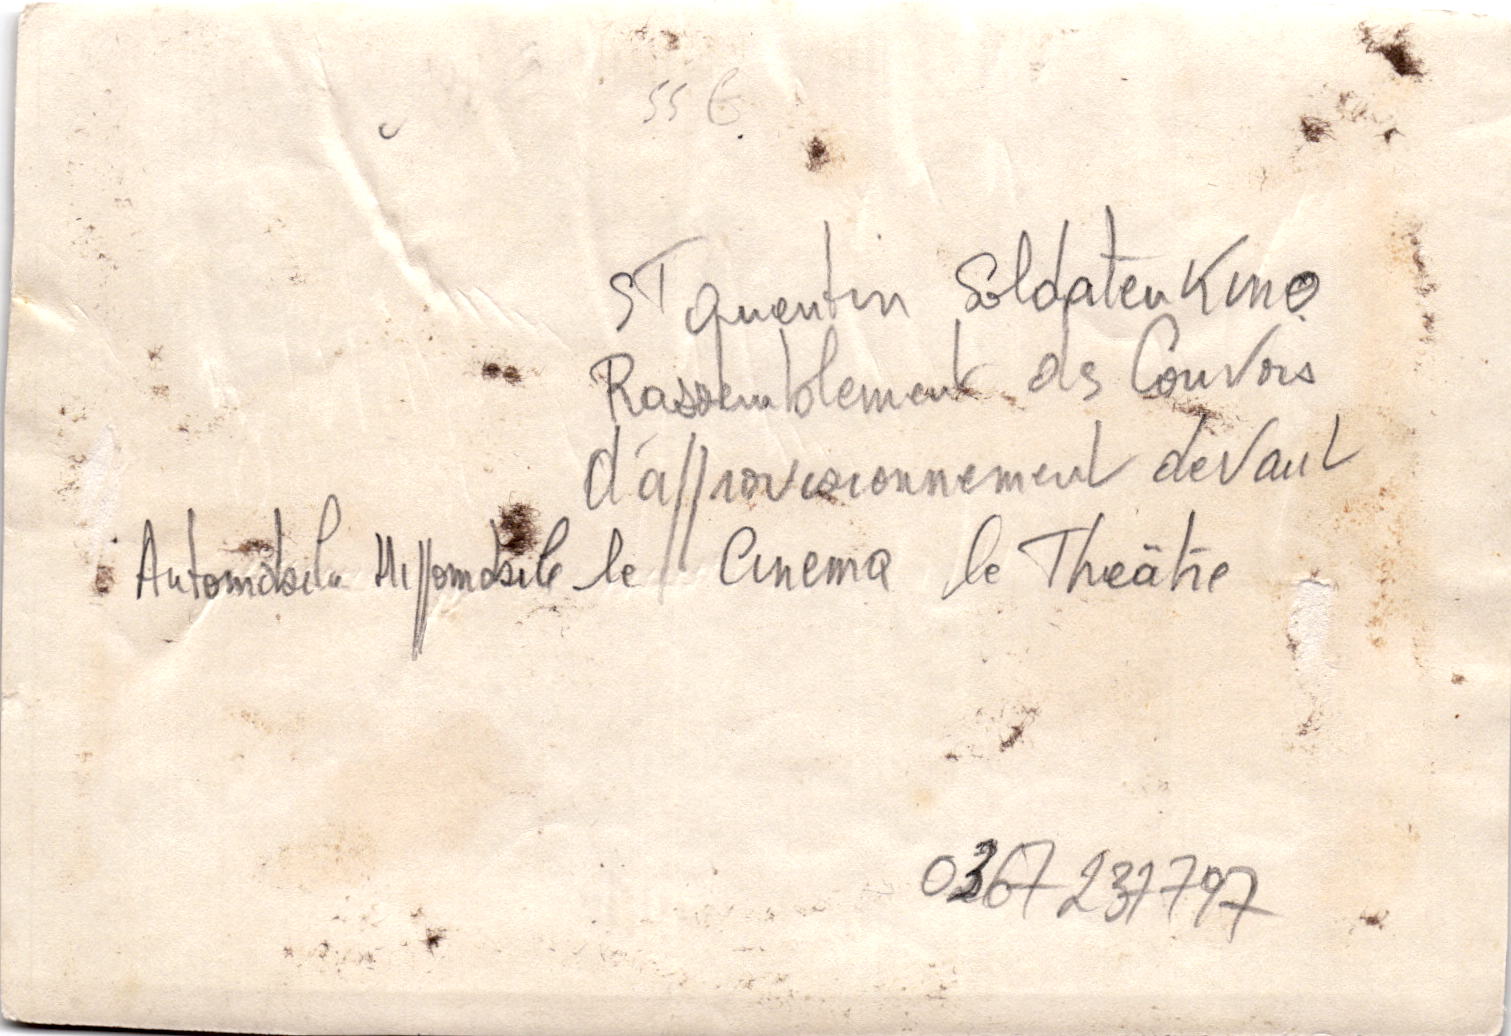 55 €
ST Quentin Soldatenkino
Rassemblement des Convois
d'approvisionnement devant
Automobile Hippomobile le Cinema le Theâtre
0367 231797